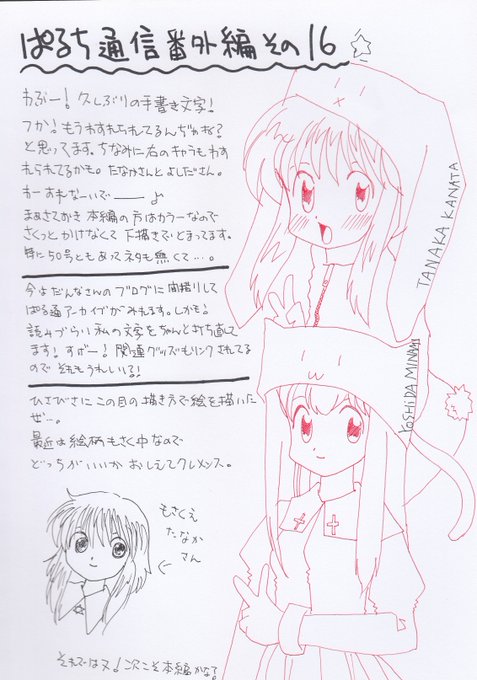 ぱるち通信番外編その16
わぶー!久しぶりの手書き文字!
つか!もうわすれられてるんぢゃね?
と思ってます。ちなみに右のキャラもわす
れられてるかも。たなかさんとよしださん。
わーすれなーいでーーよ
まぁさておき本編の方はカラーなので
さくっとかけなくて下描きでとまってます。
50号ともあってネタも無くて…。
今よだんなさんのブログに間借りして
ぱる通アーカイブがみれます。しかも!
読みづらい私の文字をちゃんと打ち直して
ます!すげー!関連グッズもリンクされてる
ので それもうれしい!
ひさびさにこの目の描き方で絵を描いた
ぜー。
最近は絵柄もさく中なので
どっちがいいか おしえてクレメンス。
もさくえ
たなか
さん
それではヌ!次こそ本編かな?
TANAKA KANATA
YOSHIDA MINAMI